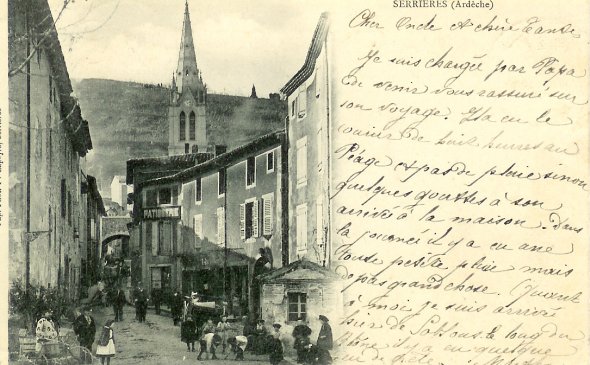 SERRIÈRES (Ardèche)
Cher Oncle et chère Tante
Je suis chargée par Papa
de venir vous rassuré sur
son voyage. Il a eu le
de huit heures au
Péage et pas de pluie sinon
quelques gouttes à son
arrivé à la maison. Dans
la journeé il y a eu une
toute petite pluie mais
pas grand chose. Quant
à moi je suis arrivée
hier de le long du
il y a eu quelque